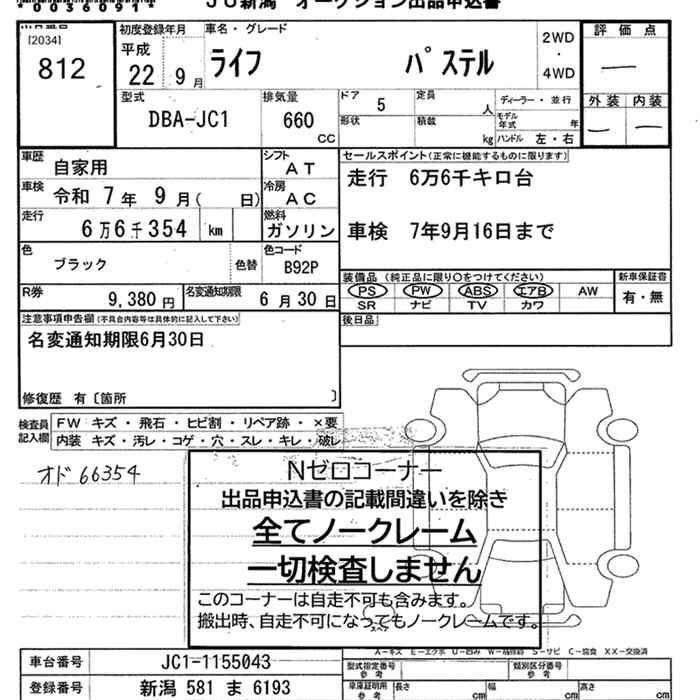 *00036091*
JU新潟 オークション出品申込書
出品番号
[2034]
812
初度登録年月
平成
22年9月
車名・グレード
ライフ パステル
2WD
・
4WD
評価点
―
外装 内装
― ―
型式
DBA-JC1
排気量
660
CC
ドア
5
定員
人
形状
積載
kg
ディーラー・並行
モデル年式 年
ハンドル 左・右
車歴
自家用
シフト
AT
車検
令和 7年 9月( 日)
冷房
AC
走行
6万6千354 km
燃料
ガソリン
色
ブラック
色替
色コード
B92P
R券
9,380円
名変通知期限
6月30日
セールスポイント(正常に機能するものに限ります)
走行 6万6千キロ台
車検 7年9月16日まで
装備品(純正品に限り○をつけてください)
PS PW ABS エアB AW
SR ナビ TV カワ
新車保証書
有・無
後日品
注意事項申告欄(不具合内容等は具体的に記入して下さい)
名変通知期限6月30日
修復歴 有〔箇所 〕
検査員記入欄
FW キズ・飛石・ヒビ割・リペア跡・×要
内装 キズ・汚レ・コゲ・穴・スレ・キレ・破レ
オド 66354
Nゼロコーナー
出品申込書の記載間違いを除き
全てノークレーム
一切検査しません
このコーナーは自走不可も含みます。
搬出時、自走不可になってもノークレームです。
スペア
A-キズ E-エクボ U-凹み W-補修跡 S-サビ C-腐食 XX-交換済
車台番号
JC1-1155043
登録番号
新潟 581 ま 6193
型式指定番号
参考
類別区分番号
参考
車庫証明用
参考
長さ cm
幅 cm
高さ cm